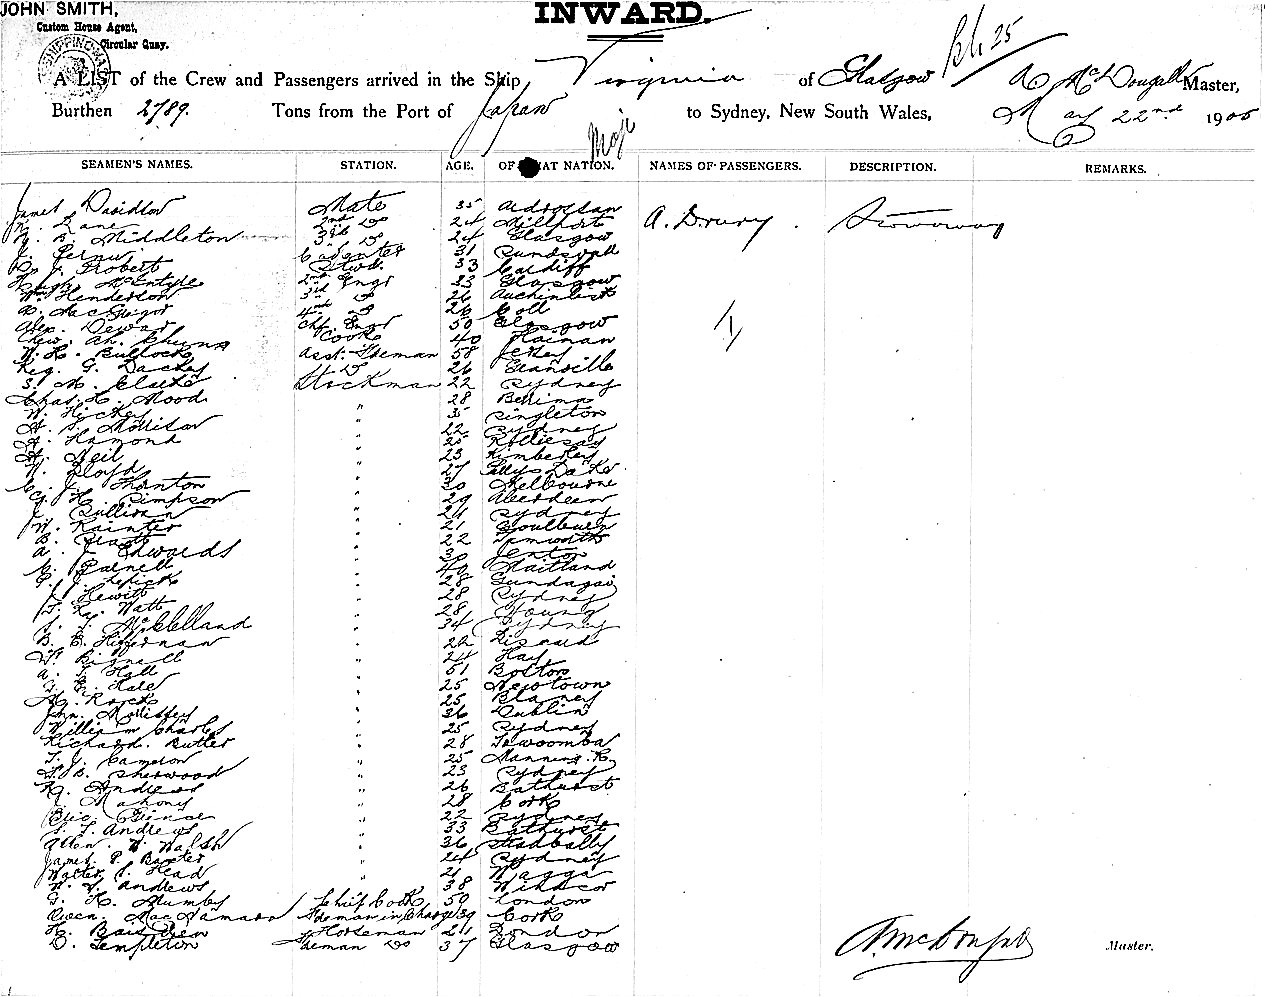 JOHN SMITH,
Custom House Agent,
Circular Quay.
INWARD.
A LIST of the Crew and Passengers arrived in the Ship Virginia of Glasgow A McDougall Master,
Burthen 2789. Tons from the Port of Japan Moji to Sydney, New South Wales, May 22nd 1900
SEAMEN'S NAMES. STATION. AGE. OF WHAT NATION. NAMES OF PASSENGERS. DESCRIPTION. REMARKS.
James Davidson Mate 35 Ardrossan A. Drury Stowaway
Lane 2nd Do 24 Millport
B. Middleton 3rd Do 24 Glasgow
Carpenter 31
J. Probert Stwd. 33 Cardiff
Hugh McIntyre 2nd Engr 33 Glasgow
Wm Henderson 3rd Do 26 Auchinleck
MacGregor 4th Do 26 Coll
Alex. Dewar Chf. Engr 50 Glasgow
Chew Ah Chung Cook 40 Hainan
W. H. Bullock Asst. Foreman 58 Jersey
Reg. G. Dackey Do 26 Granville
S. M. Clarke Stockman 22 Sydney
Chas. H. Mood " 28 Berrima
W. Hickey " 35 Singleton
Morrison " 22 Sydney
Hamond " 25
Neil " 23 Kimberley
Lloyd " 27
J. Thornton " 30 Melbourne
G. H. Simpson " 29 Aberdeen
J. Sullivan " 24 Sydney
W. Rainter " 21 Goulburn
B. " 22 Tamworth
A. J. Edwards " 30 Fenton
Parnell " 40 Maitland
" 28 Gundagai
J. Hewitt " 28 Sydney
Watt " 28 Young
S. J. McClelland " 34 Sydney
B. C. Heffernan " 22
W. Bignell " 24 Hay
A. Hall " 51 Bolton
Hale " 25 Newtown
Rock " 25 Blayney
John. " 36 Dublin
William Charles " 25 Sydney
Richard. Butler " 28 Towoomba
T. J. Cameron " 25 Manning R.
B. Sherwood " 23 Sydney
Andrews " 26 Bathurst
J. Mahony " 28 Cork
Eric " 22 Sydney
S. T. Andrews " 33 Bathurst
Allan. W. Walsh " 36 Stradbally
James. P. Baxter " 24 Sydney
Walter. S. Head " 21 Wagga
W. W. Andrews " 38 Windsor
G. H. Mumby Chief Cook 50 London
Owen. MacNamara Foreman in Charge 39 Cork
H. Baisden Horseman 24 London
D. Templeton Foreman Do 37 Glasgow
A McDougall Master.